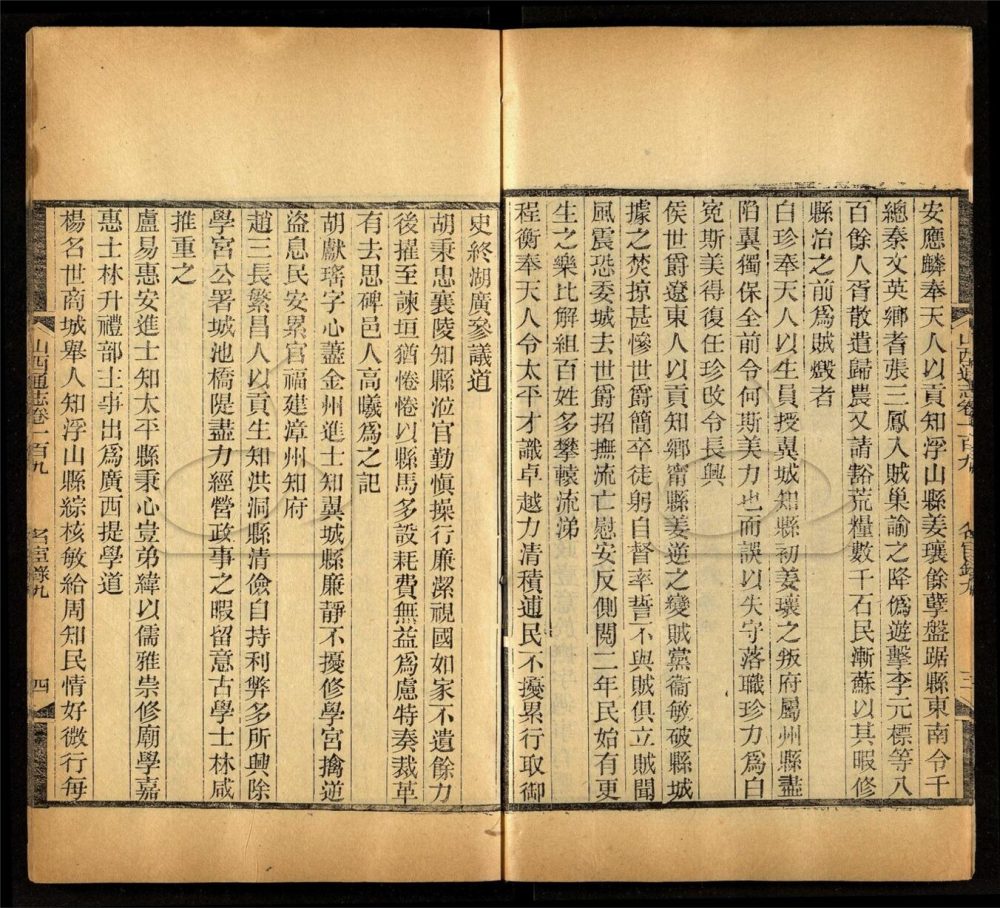 安應麟奉天人以貢知浮山縣姜瓖餘孽盤踞縣東南令千
總秦文英鄉者張三鳳入賊巢諭之降僞遊擊李元標等八
百餘人胥散遣歸農又請豁荒糧數千石民漸蘇以其暇修
縣治之前爲賊燬者
白珍奉天人以生員授翼城知縣初姜瓖之叛府屬州縣盡
陷翼獨保全前令何斯美力也而誤以失守落職珍力爲白
冤斯美得復任珍改令長興
侯世爵遼東人以貢知鄉甯縣姜逆之變賊黨衞敏破縣城
據之焚掠甚慘世爵簡卒徒躬自督率誓不與賊俱立賊聞
風震恐委城去世爵招撫流亡慰安反側閱二年民始有更
生之樂比解組百姓多攀轅流涕
程衡奉天人令太平才識卓越力清積逋民不擾累行取御
史終湖廣參議道
胡秉忠襄陵知縣涖官勤愼操行廉潔視國如家不遺餘力
後擢至諫垣猶惓惓以縣馬多設耗費無益爲慮特奏裁革
有去思碑邑人高曦爲之記
胡獻瑤字心藎金州進士知翼城縣廉靜不擾修學宮擒逆
盜息民安累官福建漳州知府
趙三長繁昌人以貢生知洪洞縣清儉自持利弊多所興除
學宮公署城池橋隄盡力經營政事之暇留意古學士林咸
推重之
盧易惠安進士知太平縣秉心豈弟緯以儒雅崇修廟學嘉
惠士林升禮部主事出爲廣西提學道
楊名世商城舉人知浮山縣綜核敏給周知民情好微行每
山西通志卷一百九
名宦錄九
四